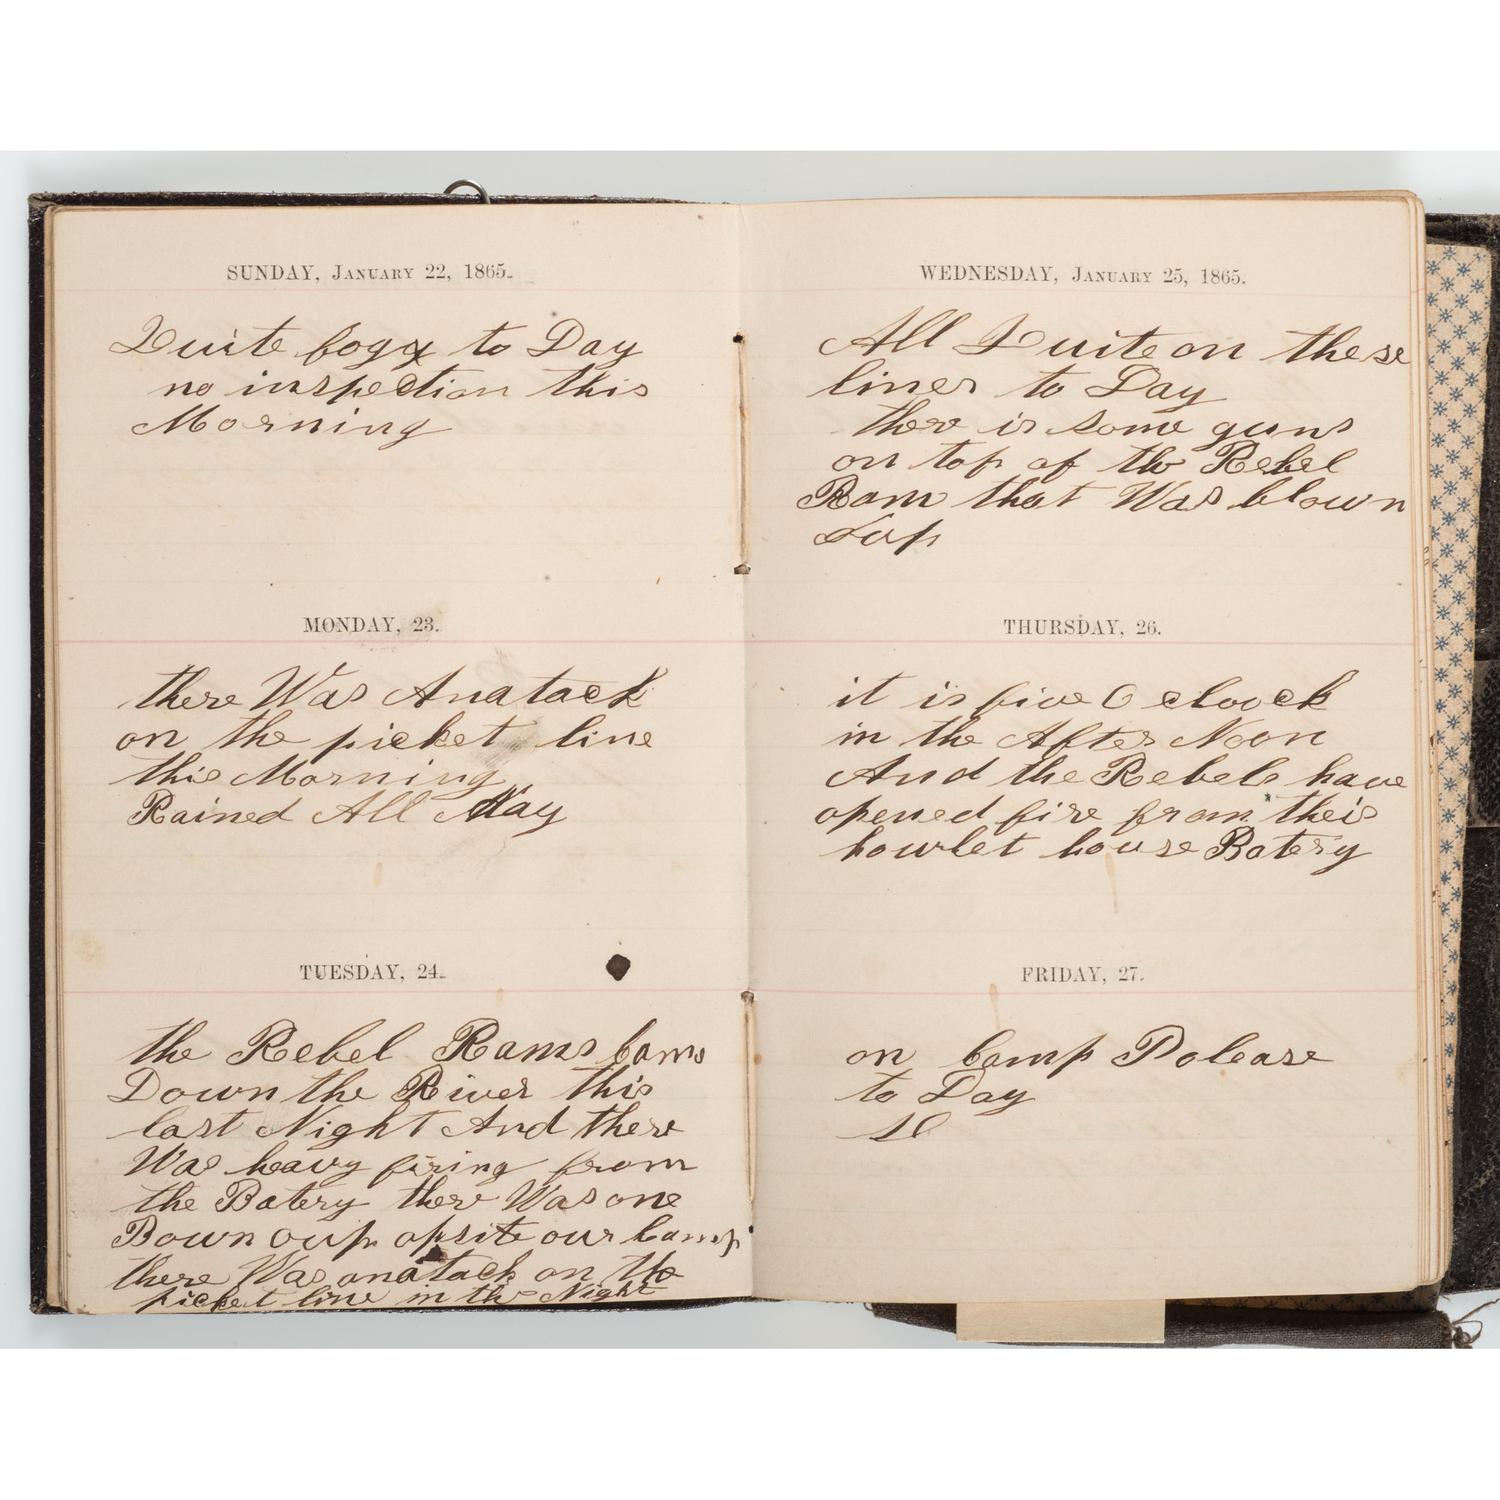 SUNDAY, JANUARY 22, 1865.
Quite fogy to Day
no inspection this
Morning
MONDAY, 23.
there Was Anatack
on the picket line
this Morning
Rained All Day
TUESDAY, 24.
the Rebel Rams Cams
Down the River this
last Night And there
Was heavy firing from
the Batery there Was one
Bown oup opsite our Camp
there Was anatack on the
picket line in the Night
WEDNESDAY, JANUARY 25, 1865.
All Quite on these
lines to Day
there is some guns
on top of the Rebel
Ram that Was blown
oup
THURSDAY, 26.
it is five O clock
in the After Noon
And the Rebels have
opened fire from their
howlet house Batery
FRIDAY, 27.
on Camp Polease
to Day